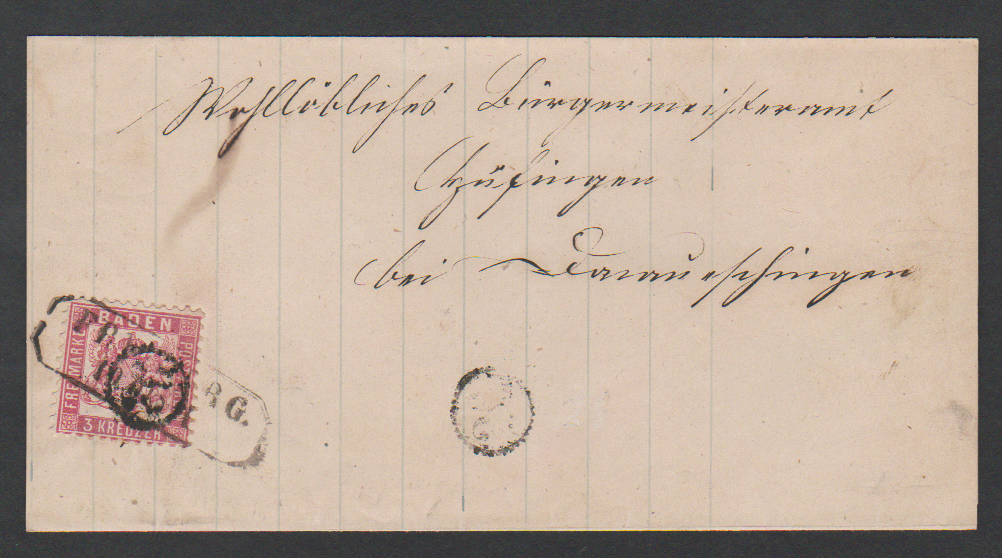 Wohllöbliches Bürgermeisteramt
Hüfingen
bei Donaueschingen
BADEN
FREIMARKE
3 KREUZER
RG.